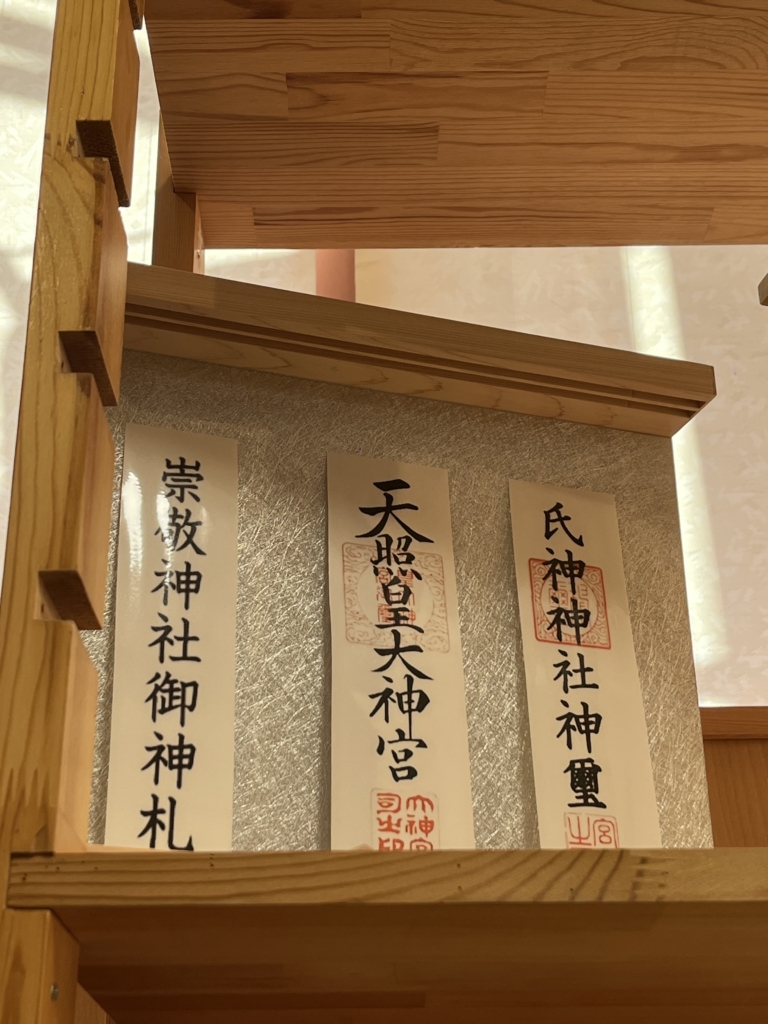 氏神神社神璽
天照皇大神宮
崇敬神社御神札